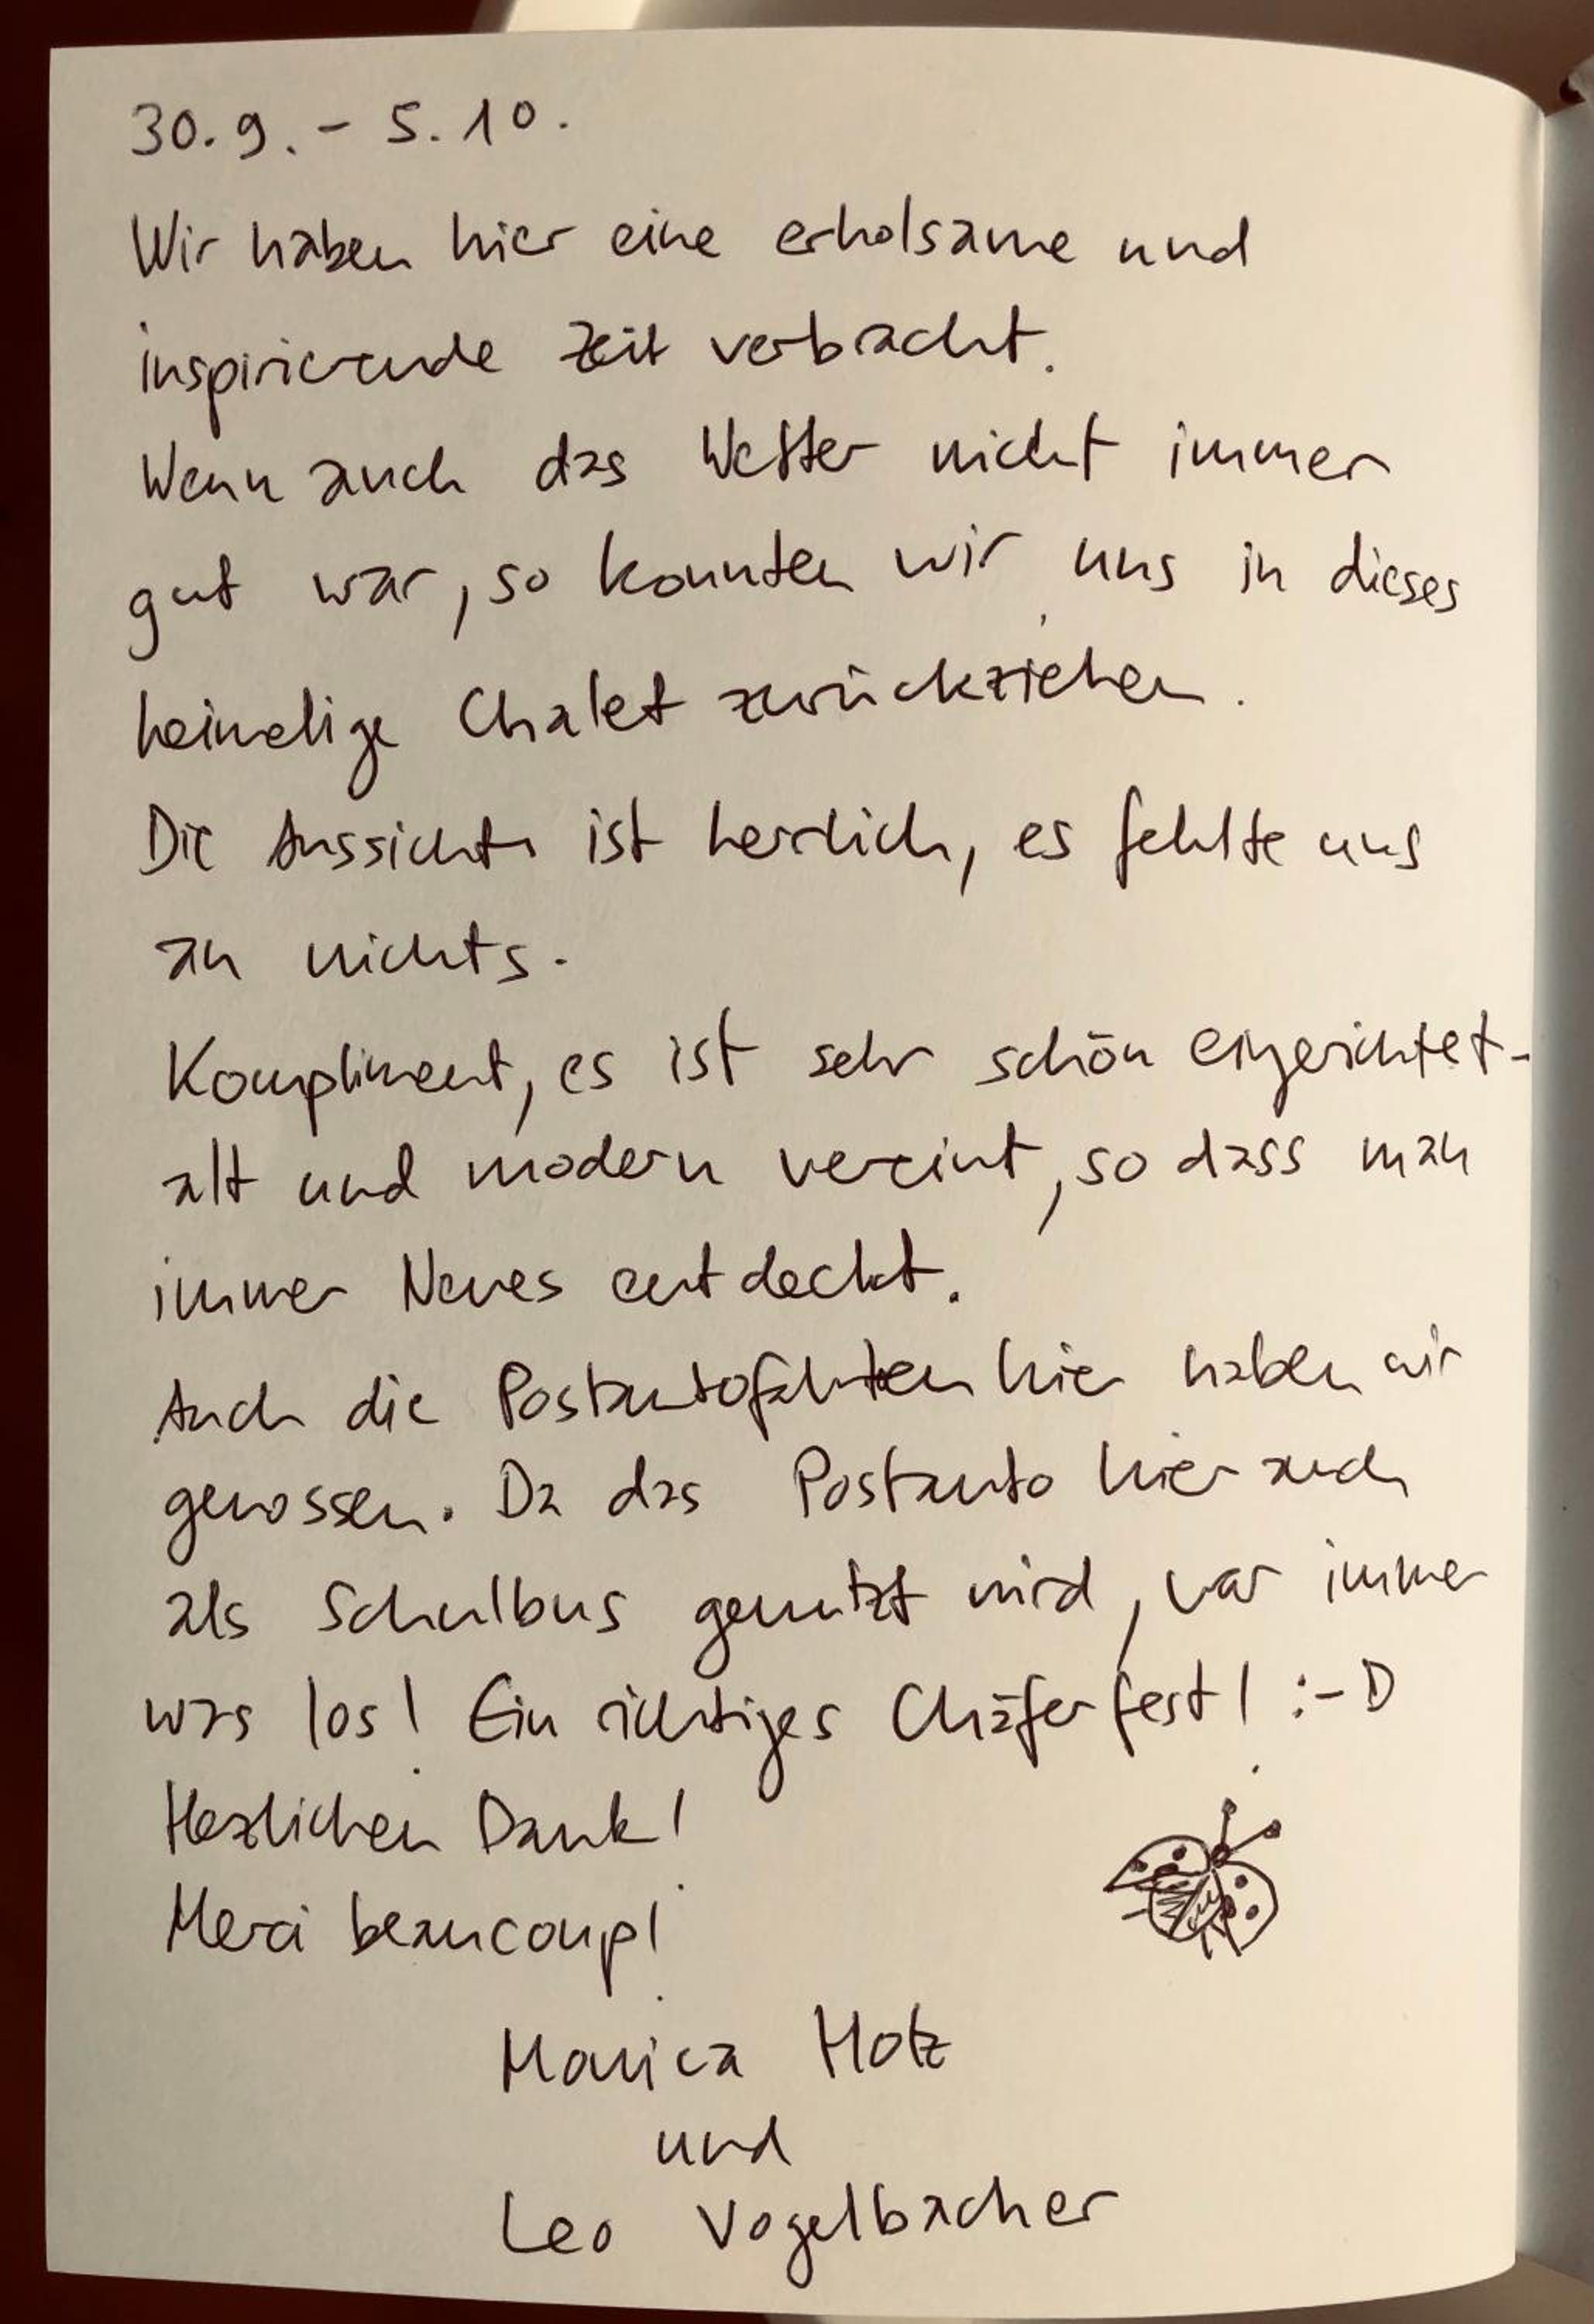 30.9. - 5.10.
Wir haben hier eine erholsame und
inspirierende Zeit verbracht.
Wenn auch das Wetter nicht immer
gut war, so konnten wir uns in dieses
heimelige Chalet zurückziehen.
Die Aussicht ist herrlich, es fehlte uns
an nichts.
Kompliment, es ist sehr schön eingerichtet -
alt und modern vereint, so dass man
immer Neues entdeckt.
Auch die Postautofahrten hier haben wir
genossen. Da das Postauto hier auch
als Schulbus genutzt wird, war immer
was los! Ein richtiges Chäferfest! :-D
Herzlichen Dank!
Merci beaucoup!
Monica Hotz
und
Leo Vogelbacher